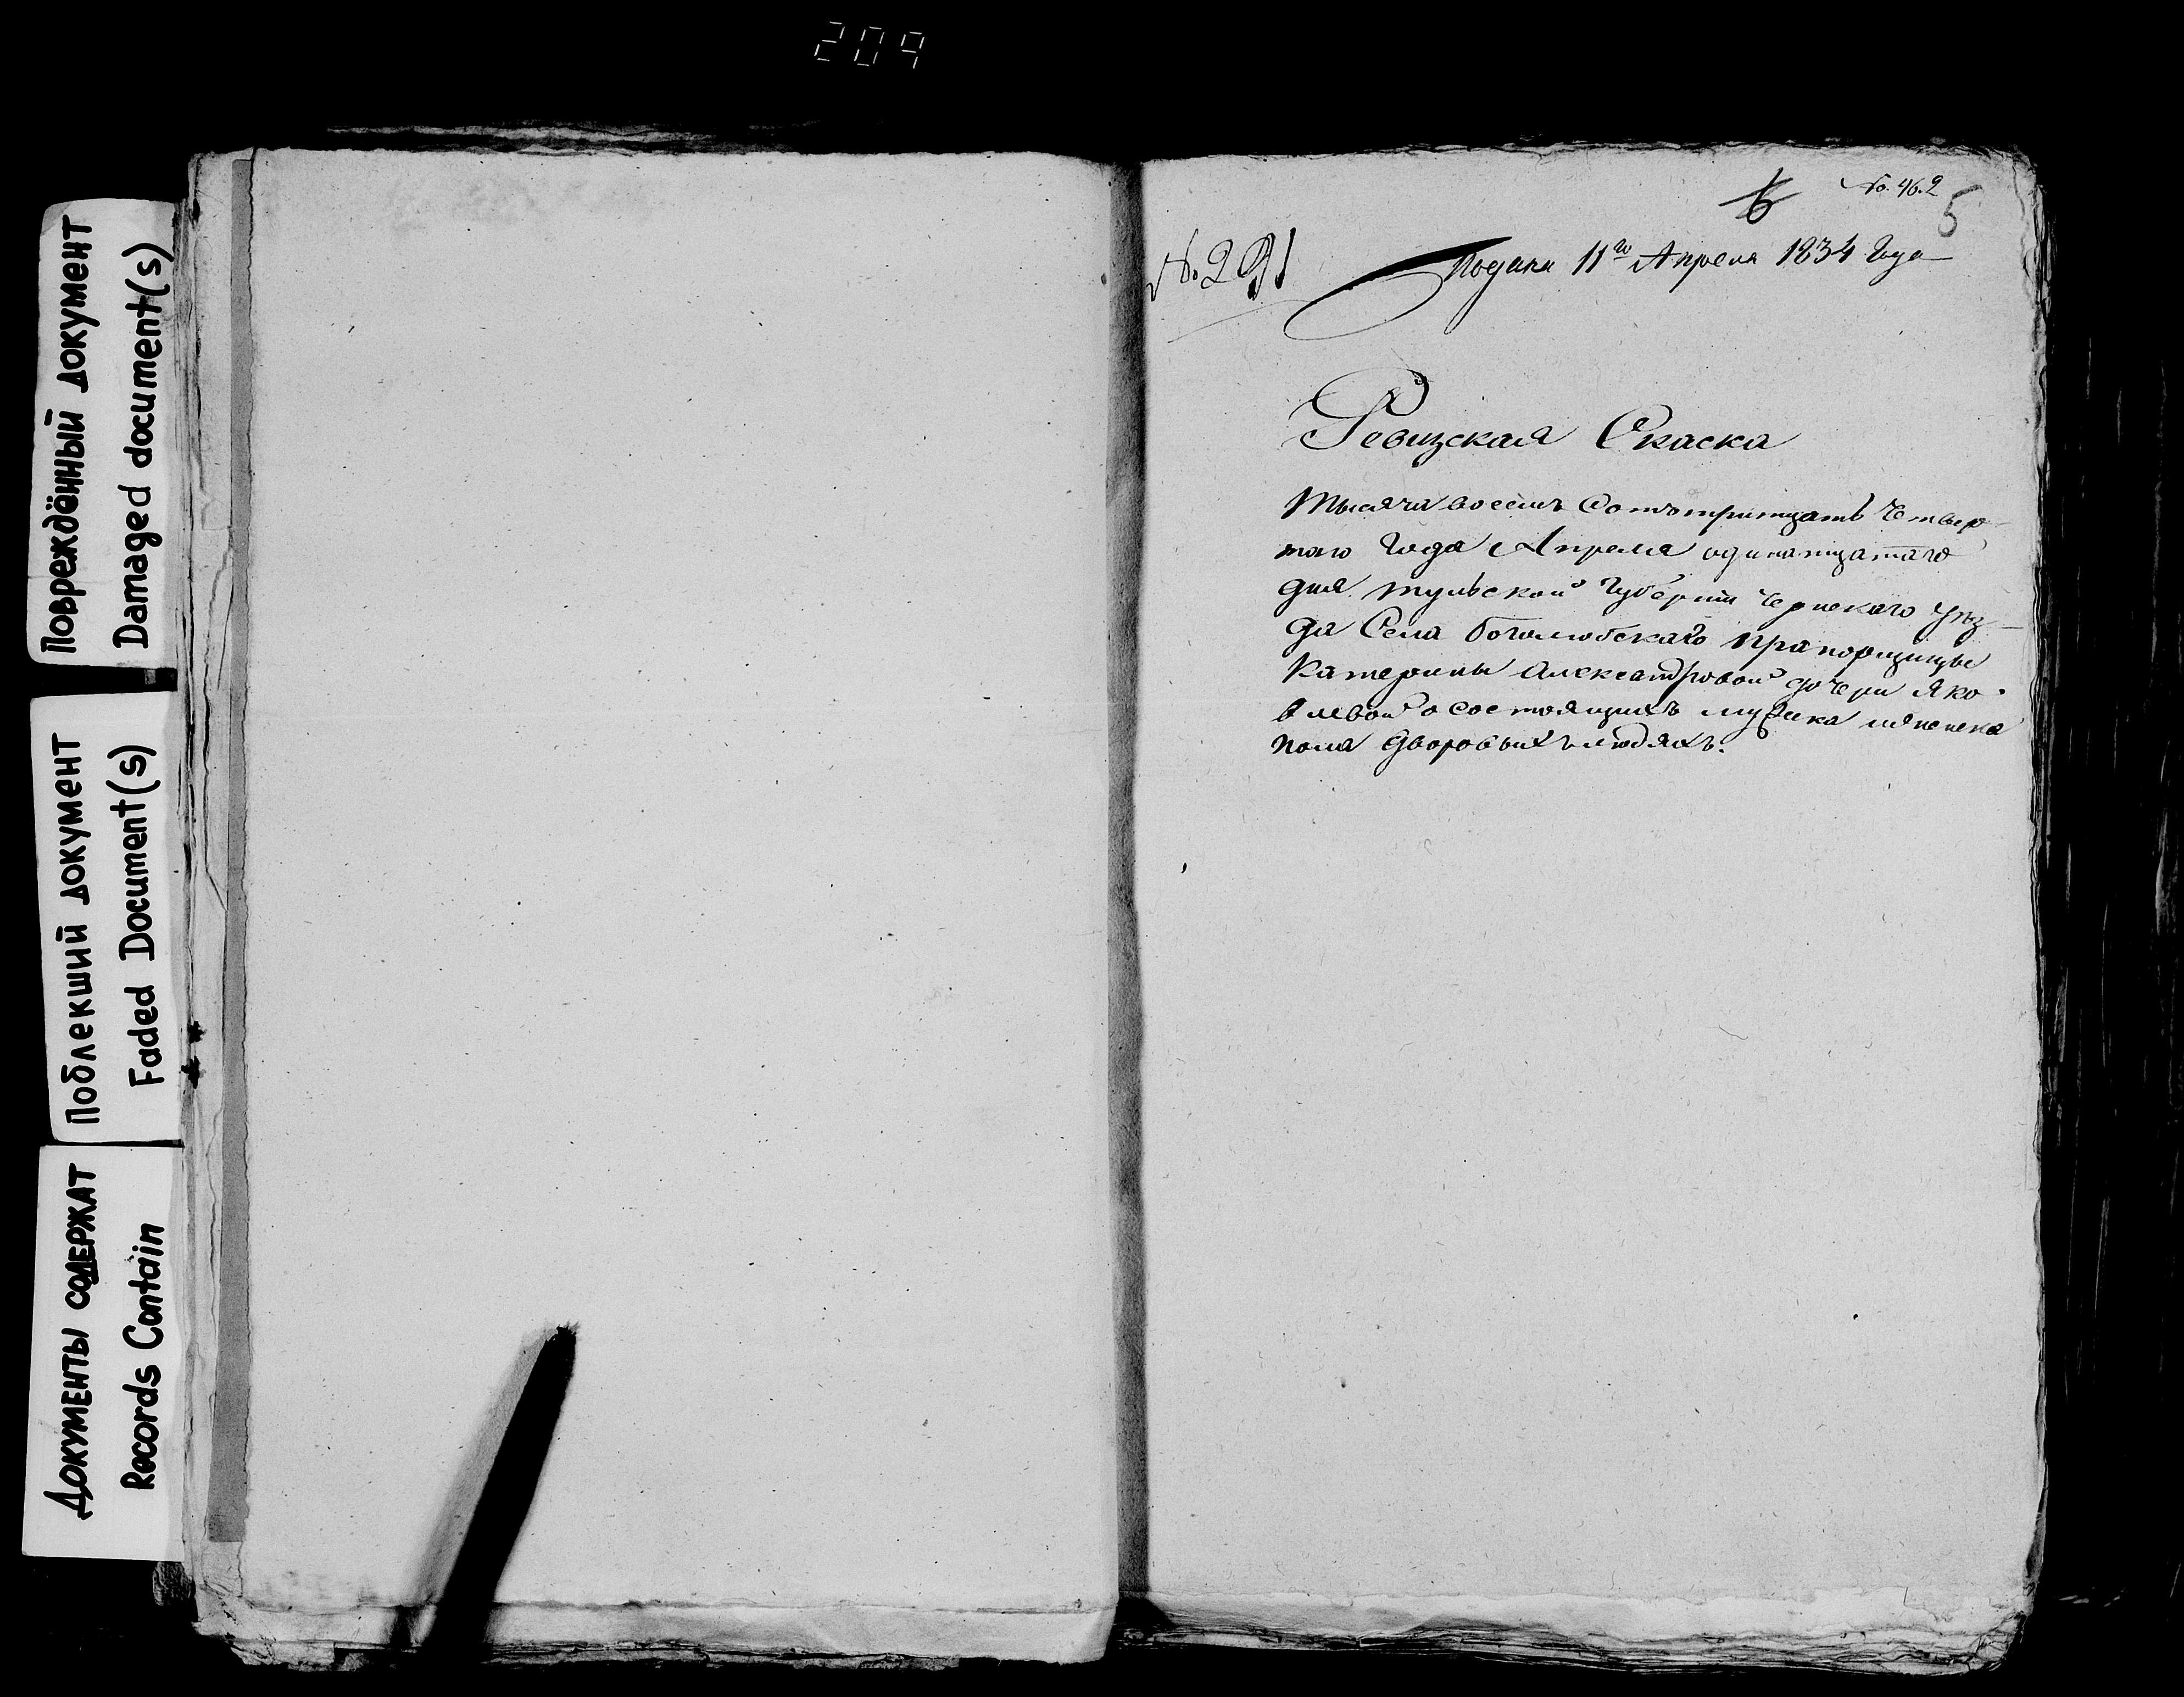 209
Повреждённый документ
Damaged document(s)
Поблекший документ
Faded Document(s)
Документы содержат
Records Contain
No. 46.2
6
5
No. 291
Подана 11го Апреля 1834 Года
Ревизская Скаска
Тысяча восемь Сотъ тритцать Четвер
таго Года Апреля одинатцатаго
дня Тульской Губернии Чернскаго Уѣз
да Села боголюбскаго прапорщицы
Катерины Александровой дочери Яко
влевой о состоящихъ мужска и женска
пола дворовыхъ людяхъ.